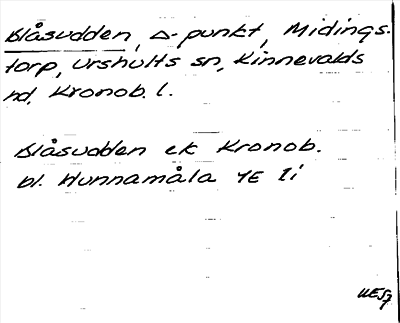 Blåsudden, Δ-punkt, Midings-
torp, Urshults sn, Kinnevalds
hd, Kronob. l.
Blåsudden ek Kronob.
bl. Hunnamåla 4E 1i